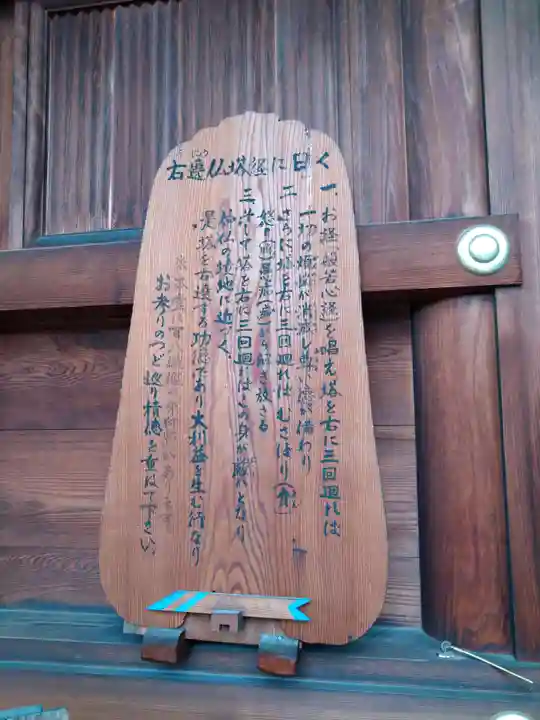 右遶仏塔経に曰く
一、お経般若心経を唱え塔を右に三回廻れば
一切の煩悩が消滅し尊い徳が備わり
二 さらに塔を右に三回廻れば むさぼり(貪)
怒り(瞋)愚痴(癡)から解き放さる
三 そして塔を右に三回廻ればこの身が勝れとなり
仲仏の境地に近づく
是塔を右遶する功徳であり大利益を生む行なり
お参りのつど巡り積徳を重ねて下さい。